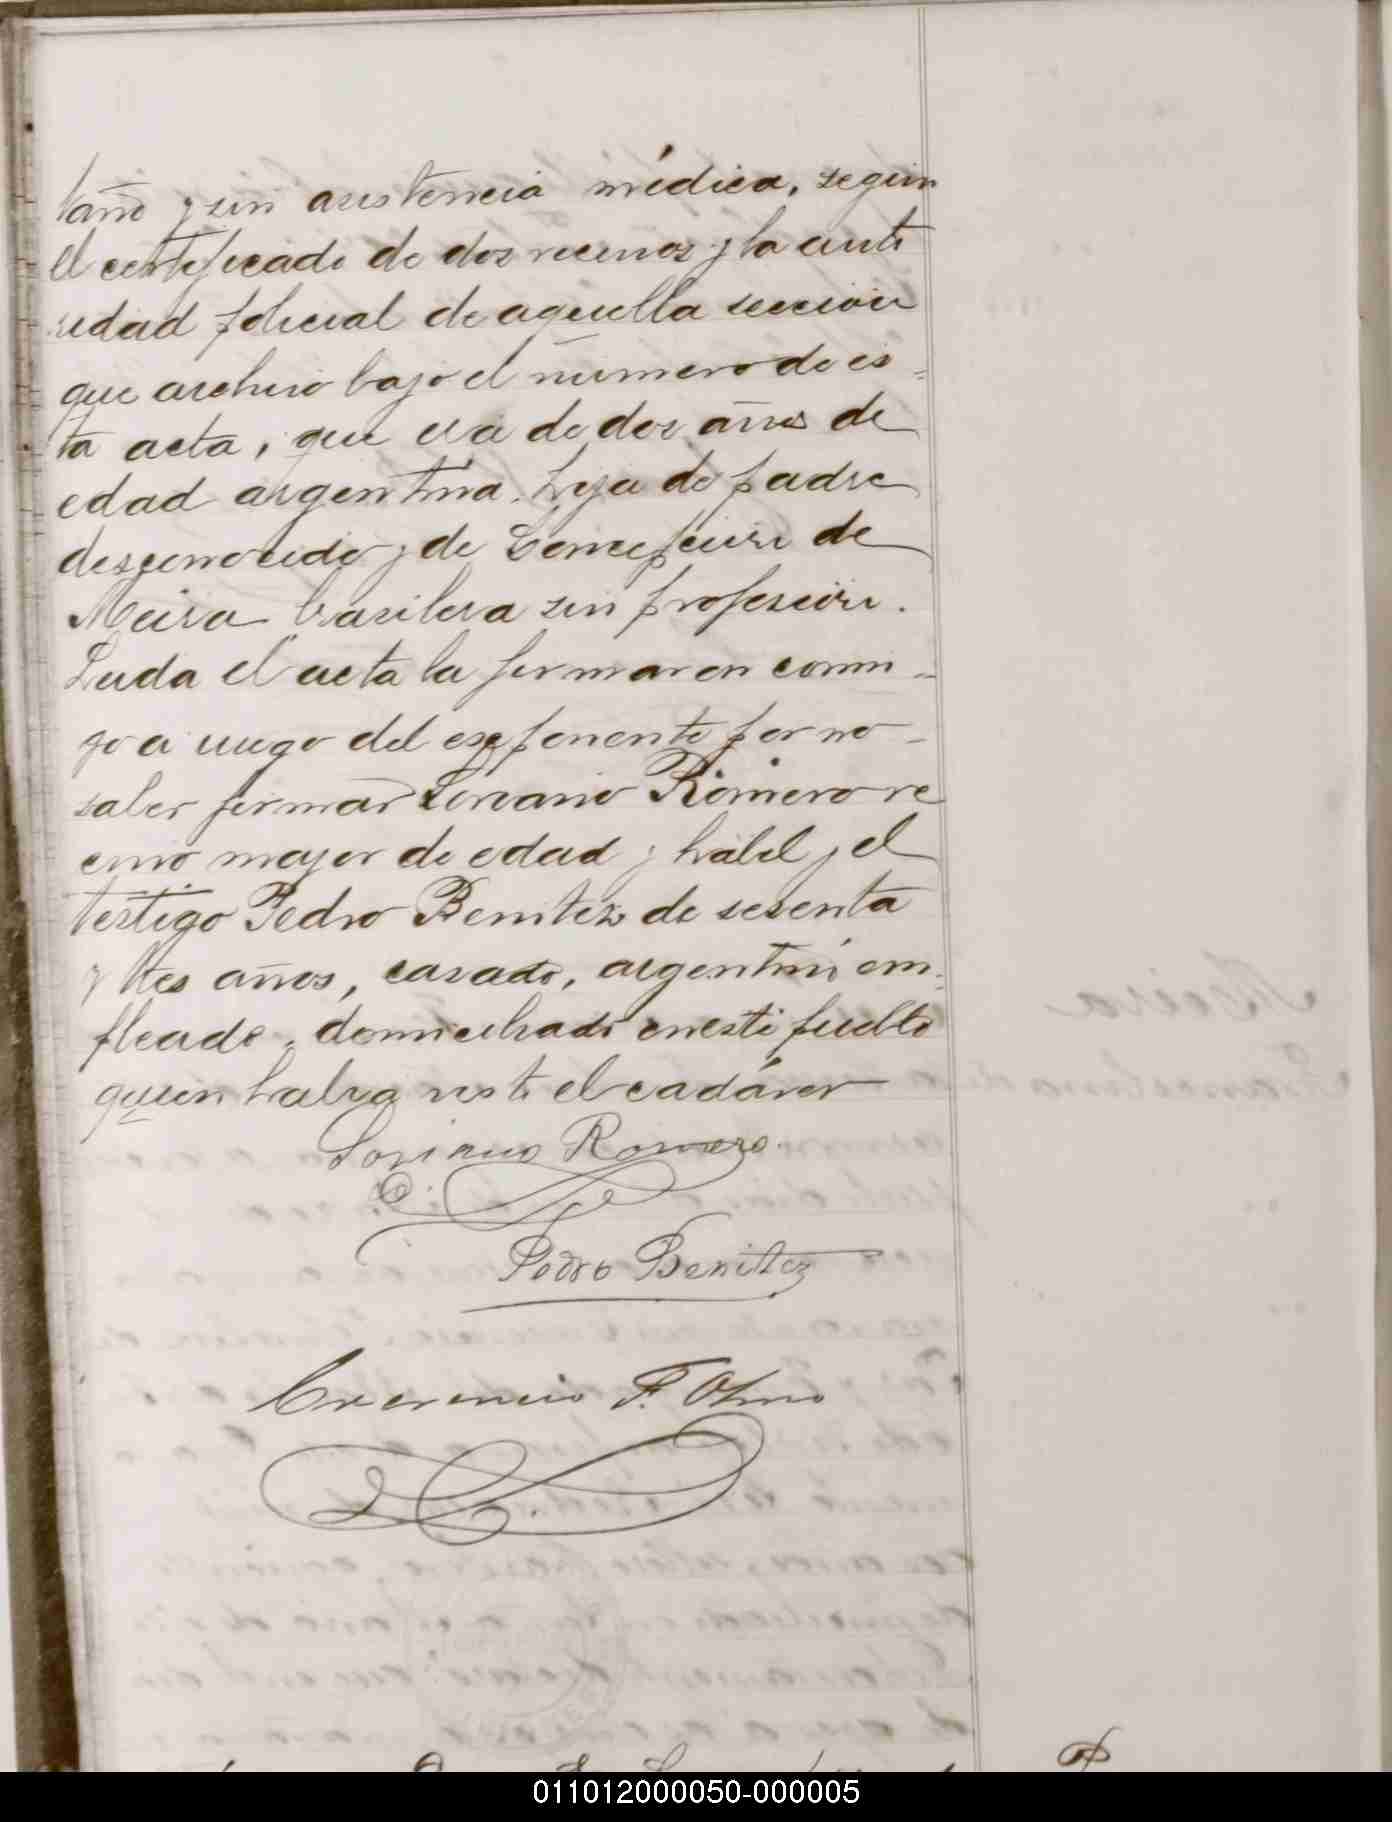 taño y sin asistencia médica, según
el certificado de dos vecinos y la auto
ridad policial de aquella seccion
que archivo bajo el número de es-
ta acta, que era de dos años de
edad argentina, hija de padre
desconocido y de Concepcion de
Meira brasilera sin profesion.
Leida el acta la firmaron conmi-
go a ruego del exponente por no-
saber firmar Soriano Romero ve
cino mayor de edad y habil y el
testigo Pedro Benitez de sesenta
y tres años, casado, argentino em-
pleado, domiciliado en este pueblo
quien habia visto el cadáver
Soriano Romero.
Pedro Benitez
Crecencio F. Olmo
011012000050-000005